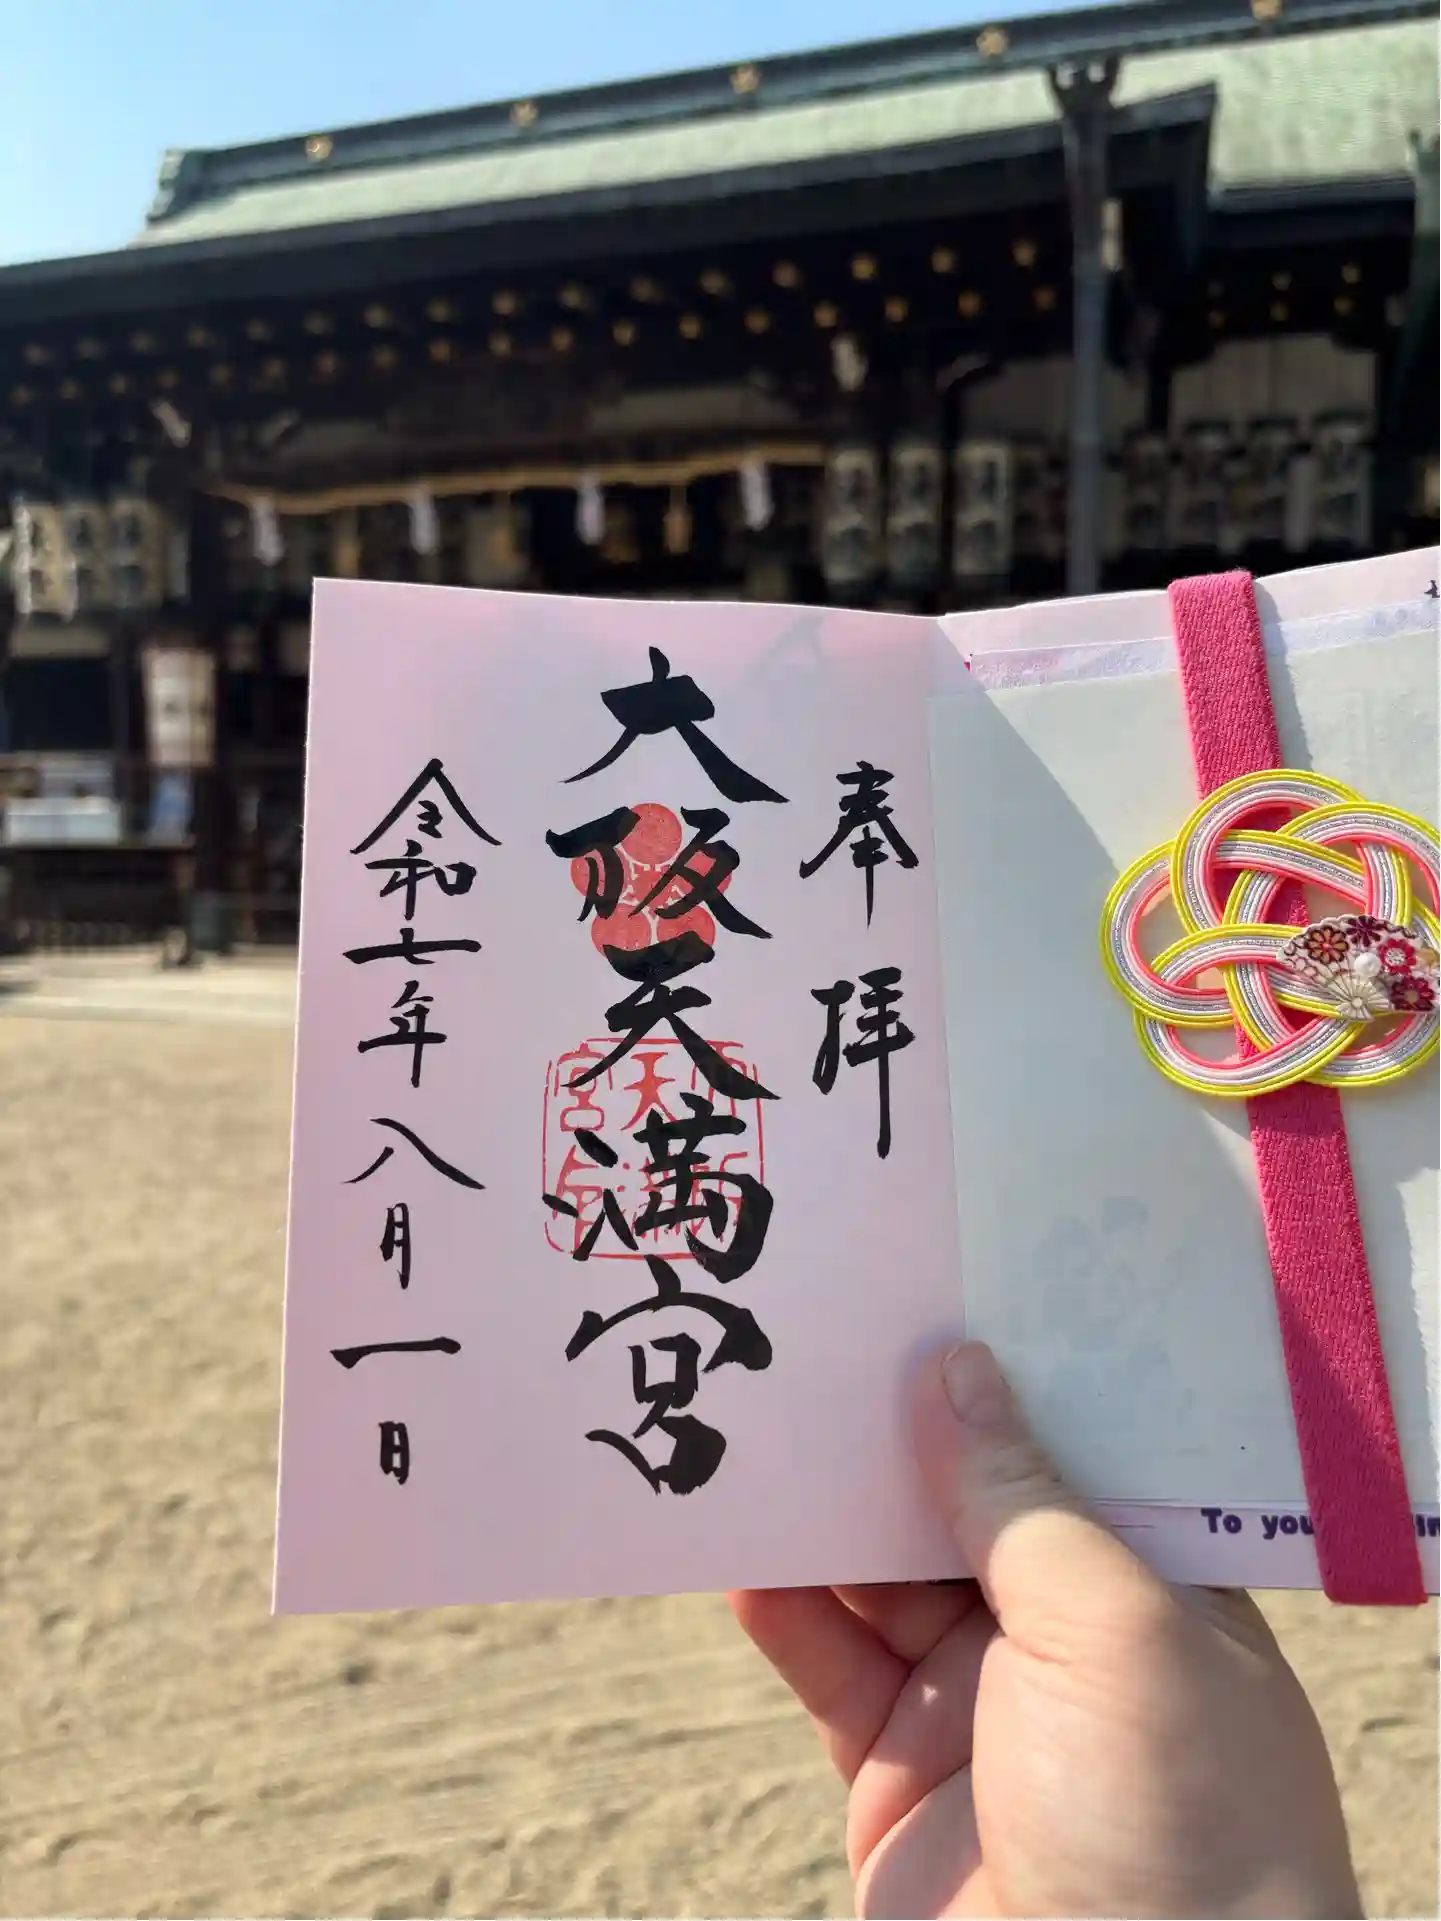 奉拝
大阪天満宮
令和七年八月一日
To you